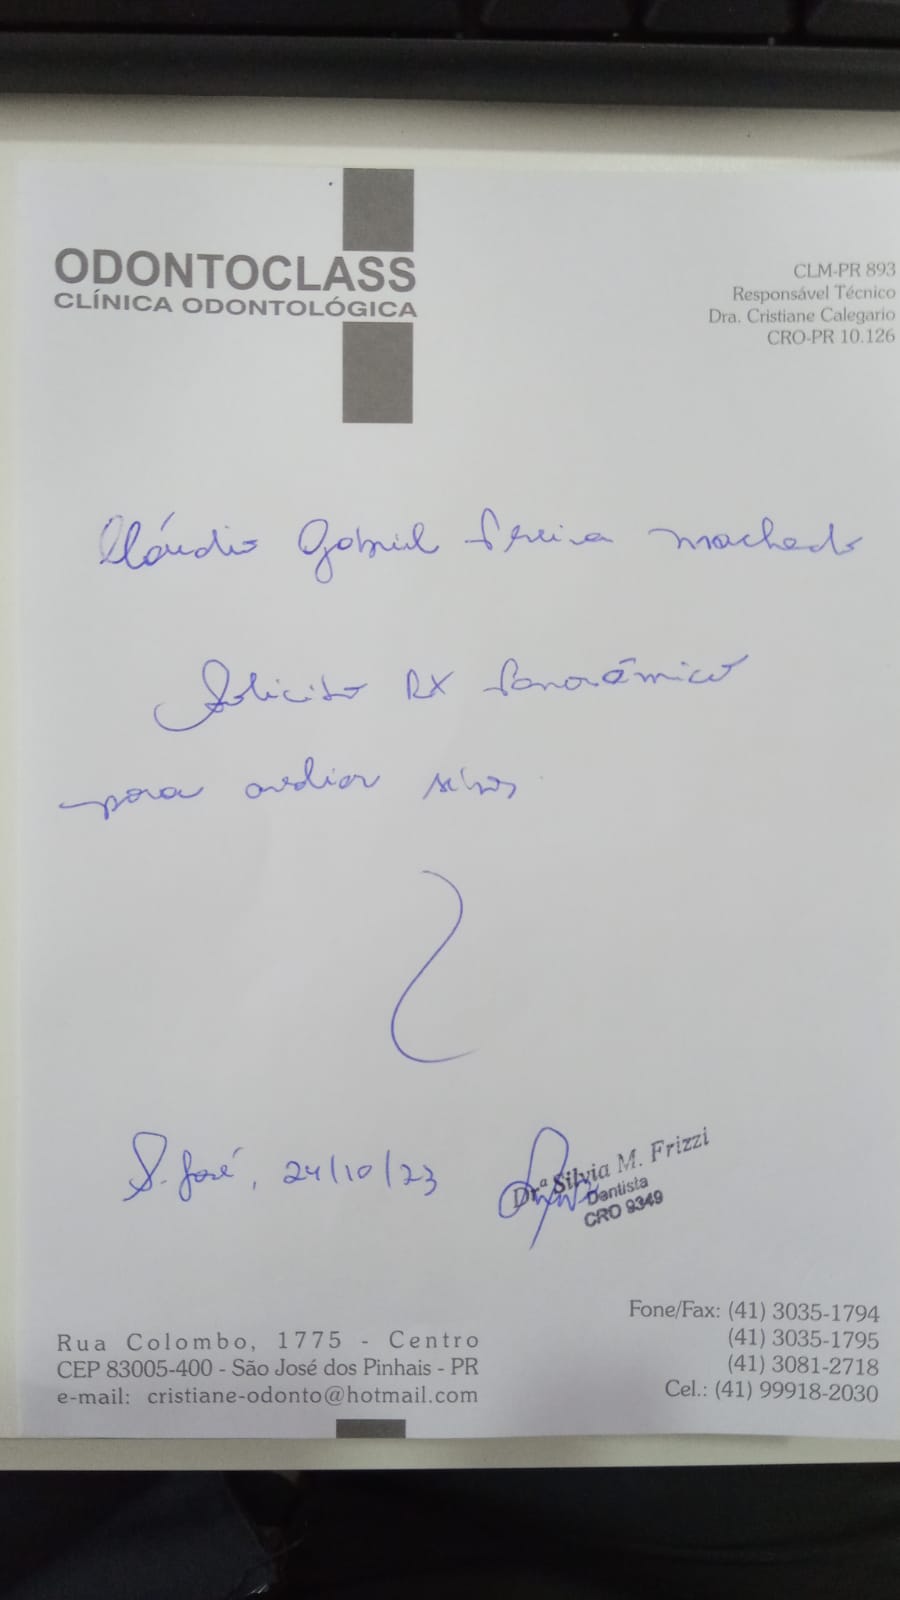 ODONTOCLASS
CLÍNICA ODONTOLÓGICA
CLM-PR 893
Responsável Técnico
Dra. Cristiane Calegario
CRO-PR 10.126
Cláudio Gabriel Pereira Machado
Solicito RX Panorâmico
para avaliar sisos
S. José, 24/10/23
Drª Silvia M. Frizzi
Dentista
CRO 9349
Rua Colombo, 1775 - Centro
CEP 83005-400 - São José dos Pinhais - PR
e-mail: cristiane-odonto@hotmail.com
Fone/Fax: (41) 3035-1794
(41) 3035-1795
(41) 3081-2718
Cel.: (41) 99918-2030